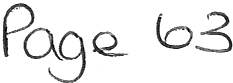 Page 63